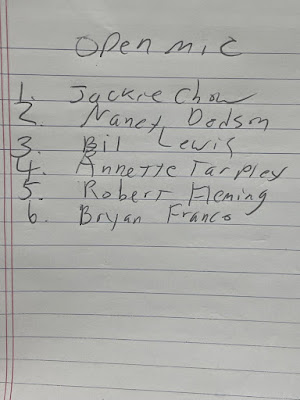 Open mic
1. Jackie Chow
2. Nancy Dodson
3. Bil Lewis
4. Annette Tarpley
5. Robert Fleming
6. Bryan Franco